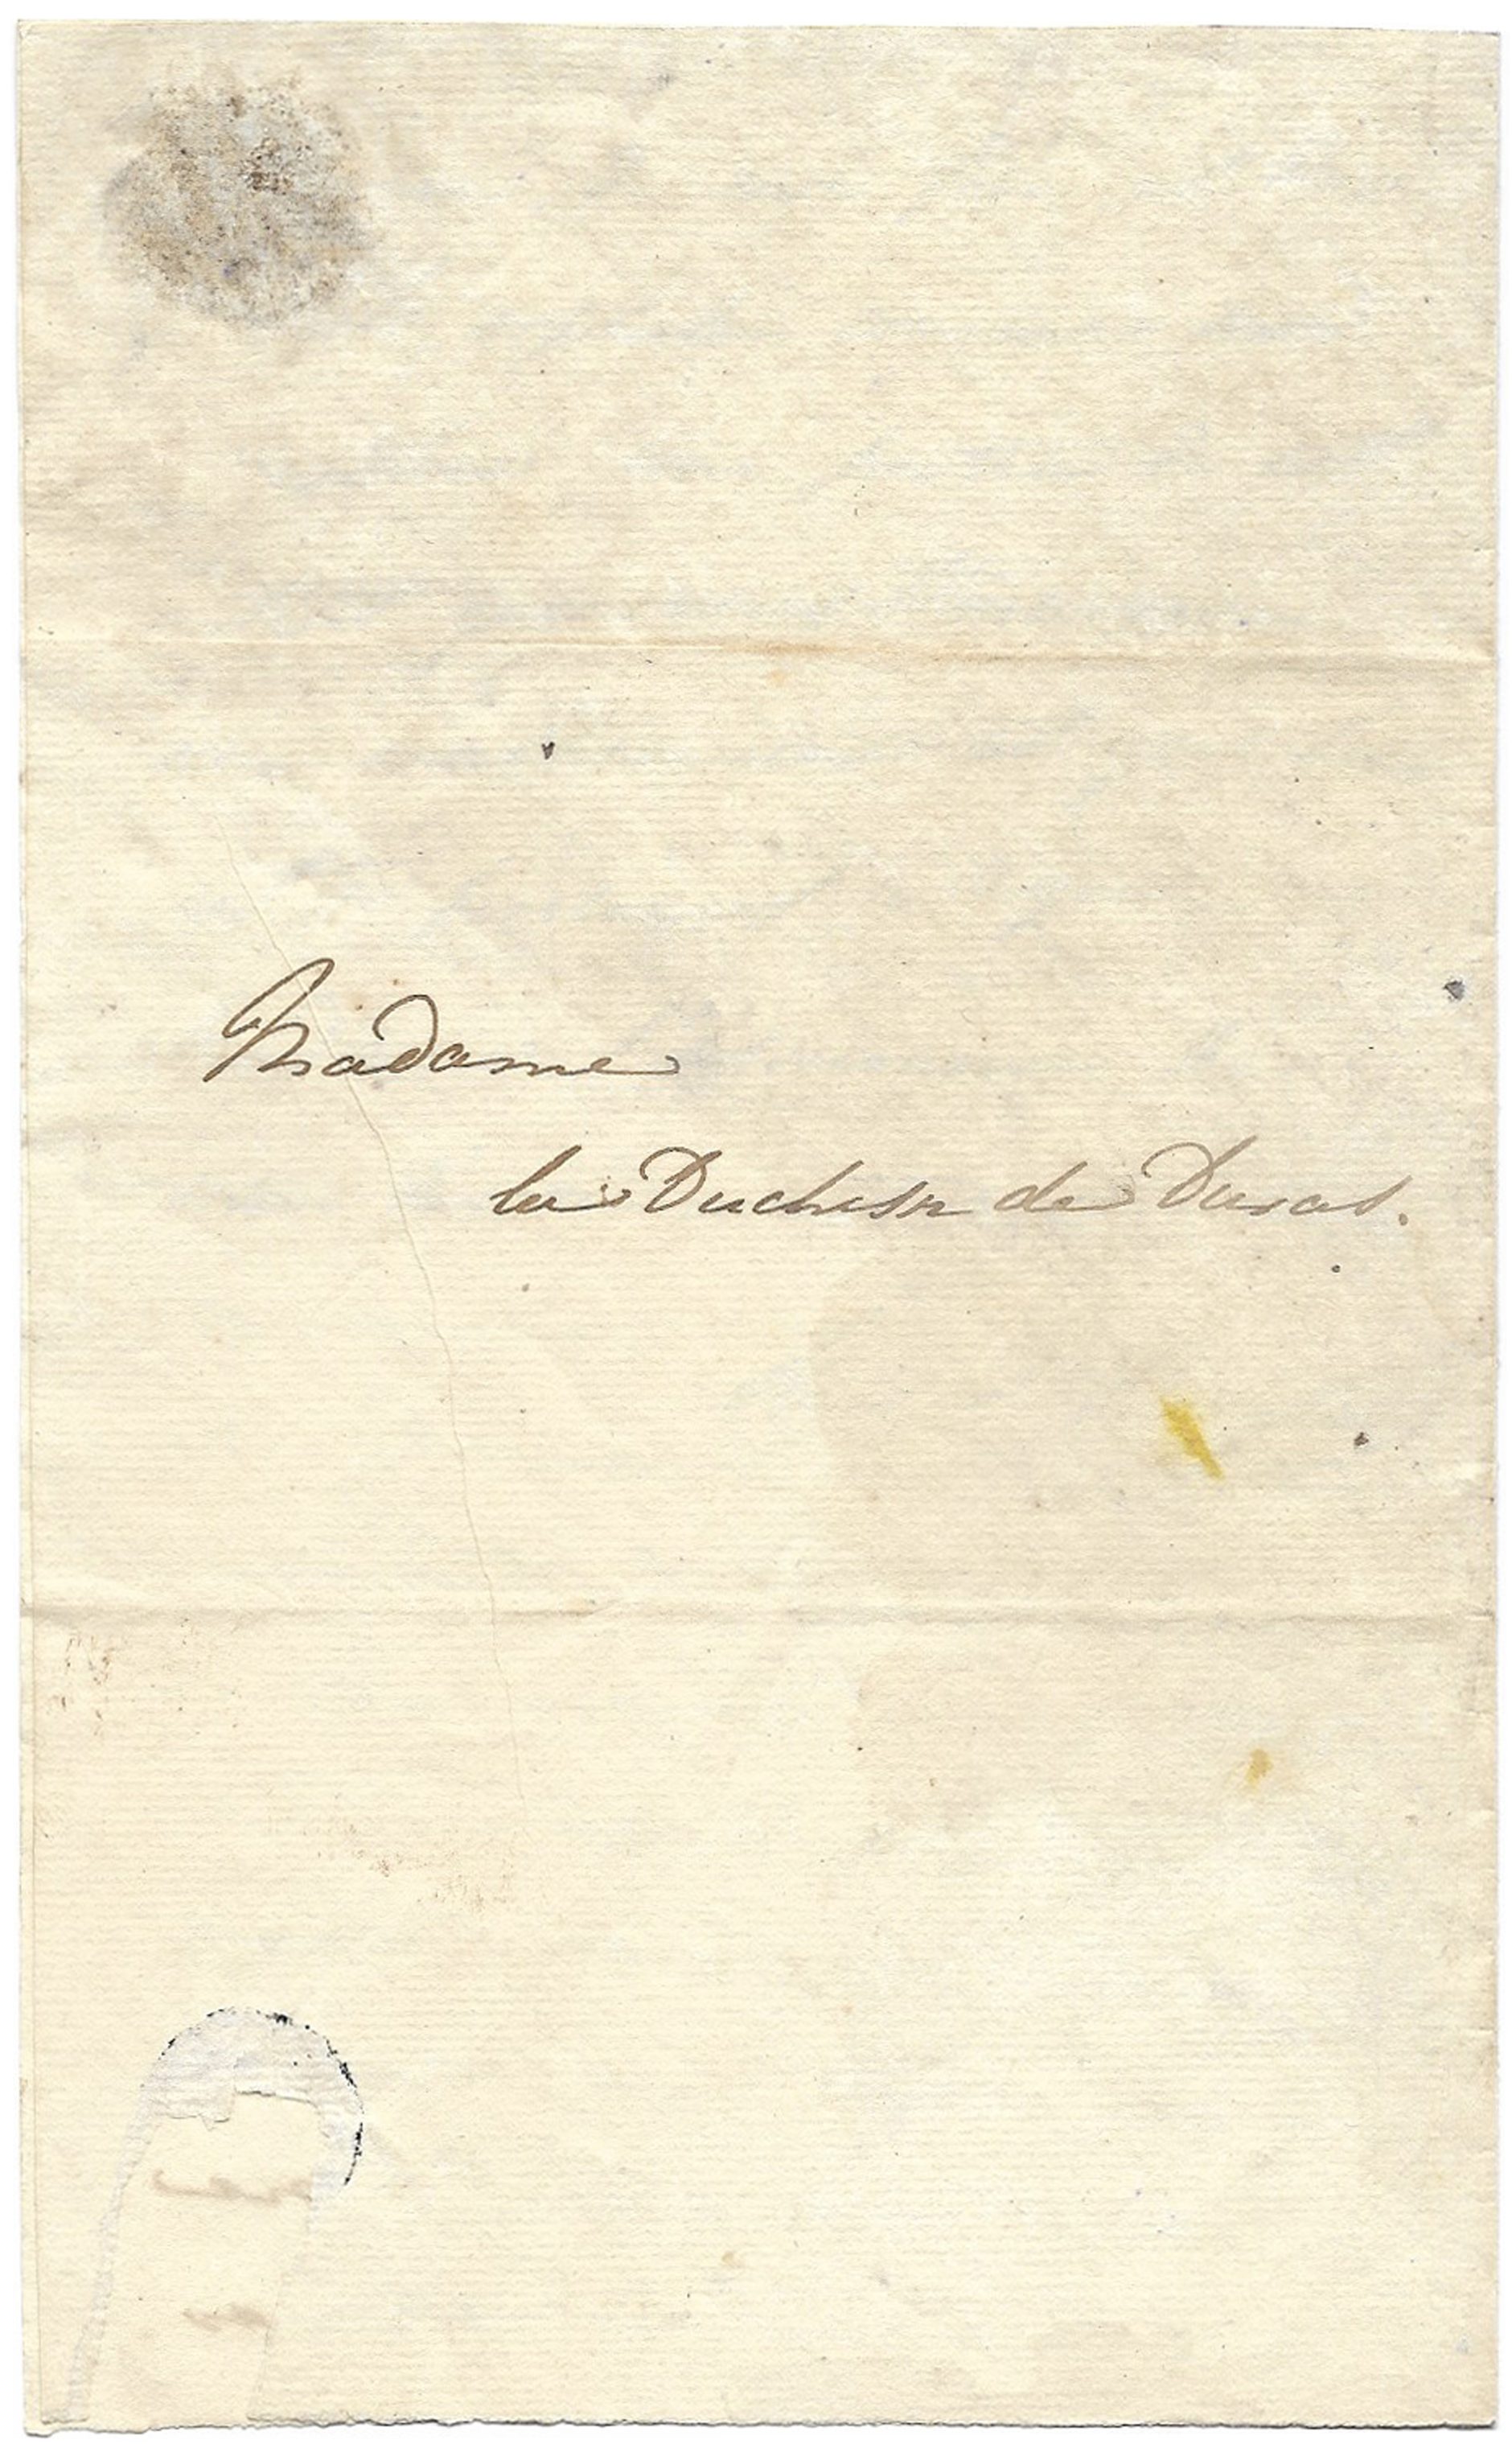 Madame
la Duchesse de Duras.